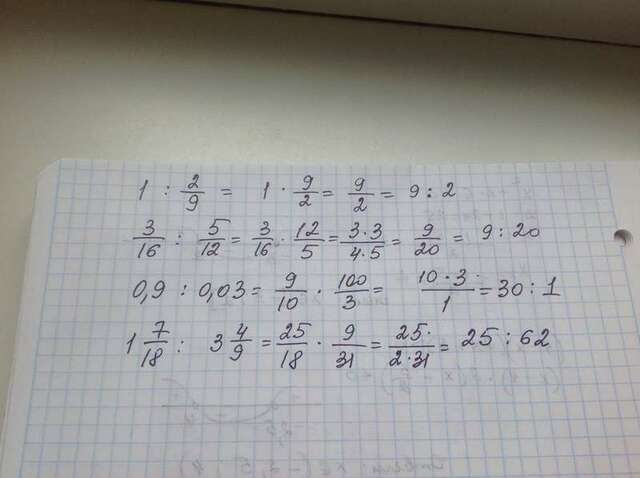 1 : 2/9 = 1 · 9/2 = 9/2 = 9 : 2
3/16 : 5/12 = 3/16 · 12/5 = 3·3/4·5 = 9/20 = 9 : 20
0,9 : 0,03 = 9/10 · 100/3 = 10·3·/1 = 30 : 1
1 7/18 : 3 4/9 = 25/18 · 9/31 = 25·/2·31 = 25 : 62